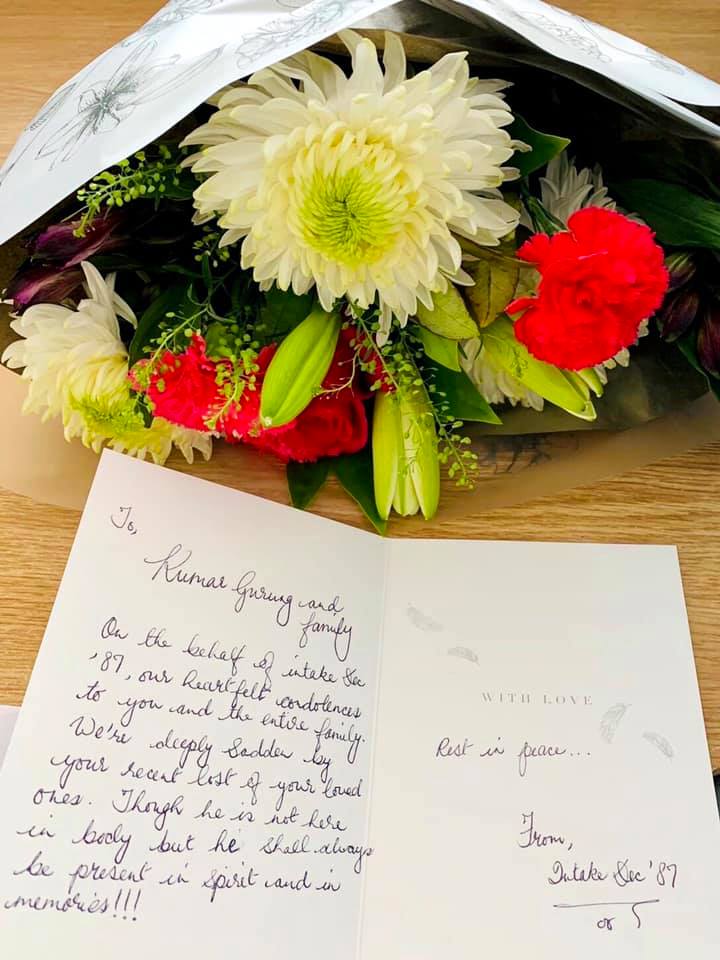 To,
Kumar Gurung and
family
On the behalf of intake Dec
'87, our heartfelt condolences
to you and the entire family.
We're deeply Sadden by
your recent lost of your loved
ones. Though he is not here
in body but he shall always
be present in spirit and in
memories!!!
WITH LOVE
Rest in peace...
From,
Intake Dec '87